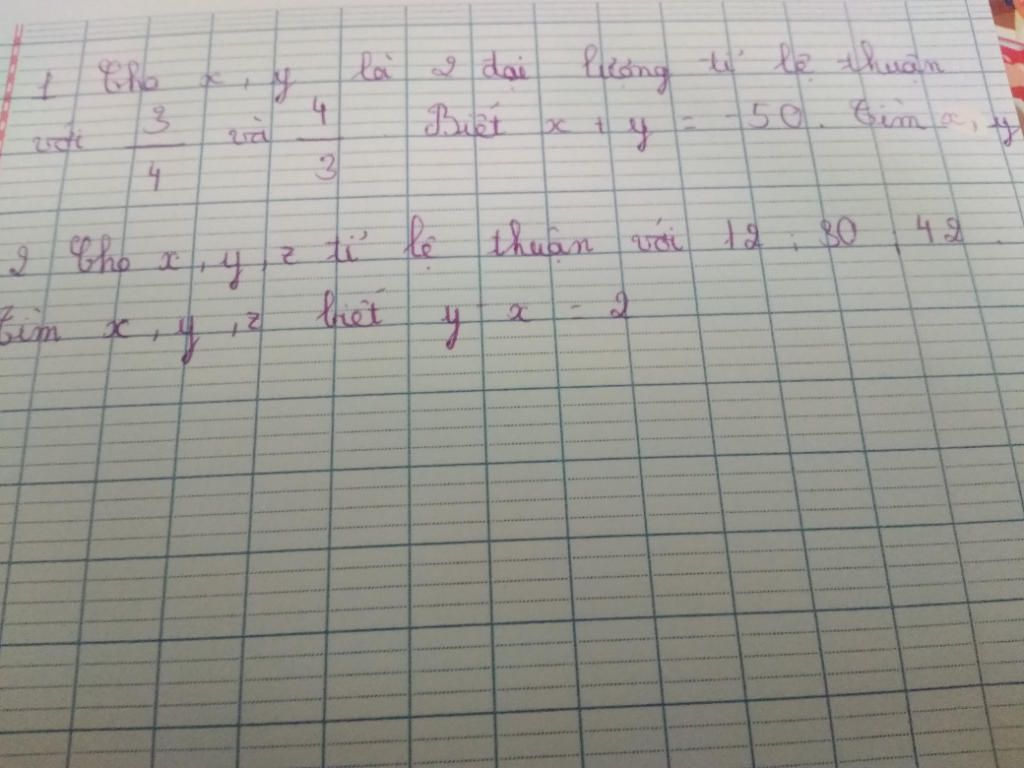 1 Cho x, y là 2 đại lượng tỉ lệ thuận
với 3/4 và 4/3 Biết x + y = -50. Tìm x, y
2 Cho x, y, z tỉ lệ thuận với 12, 30, 42.
Tìm x, y, z biết y x = 2